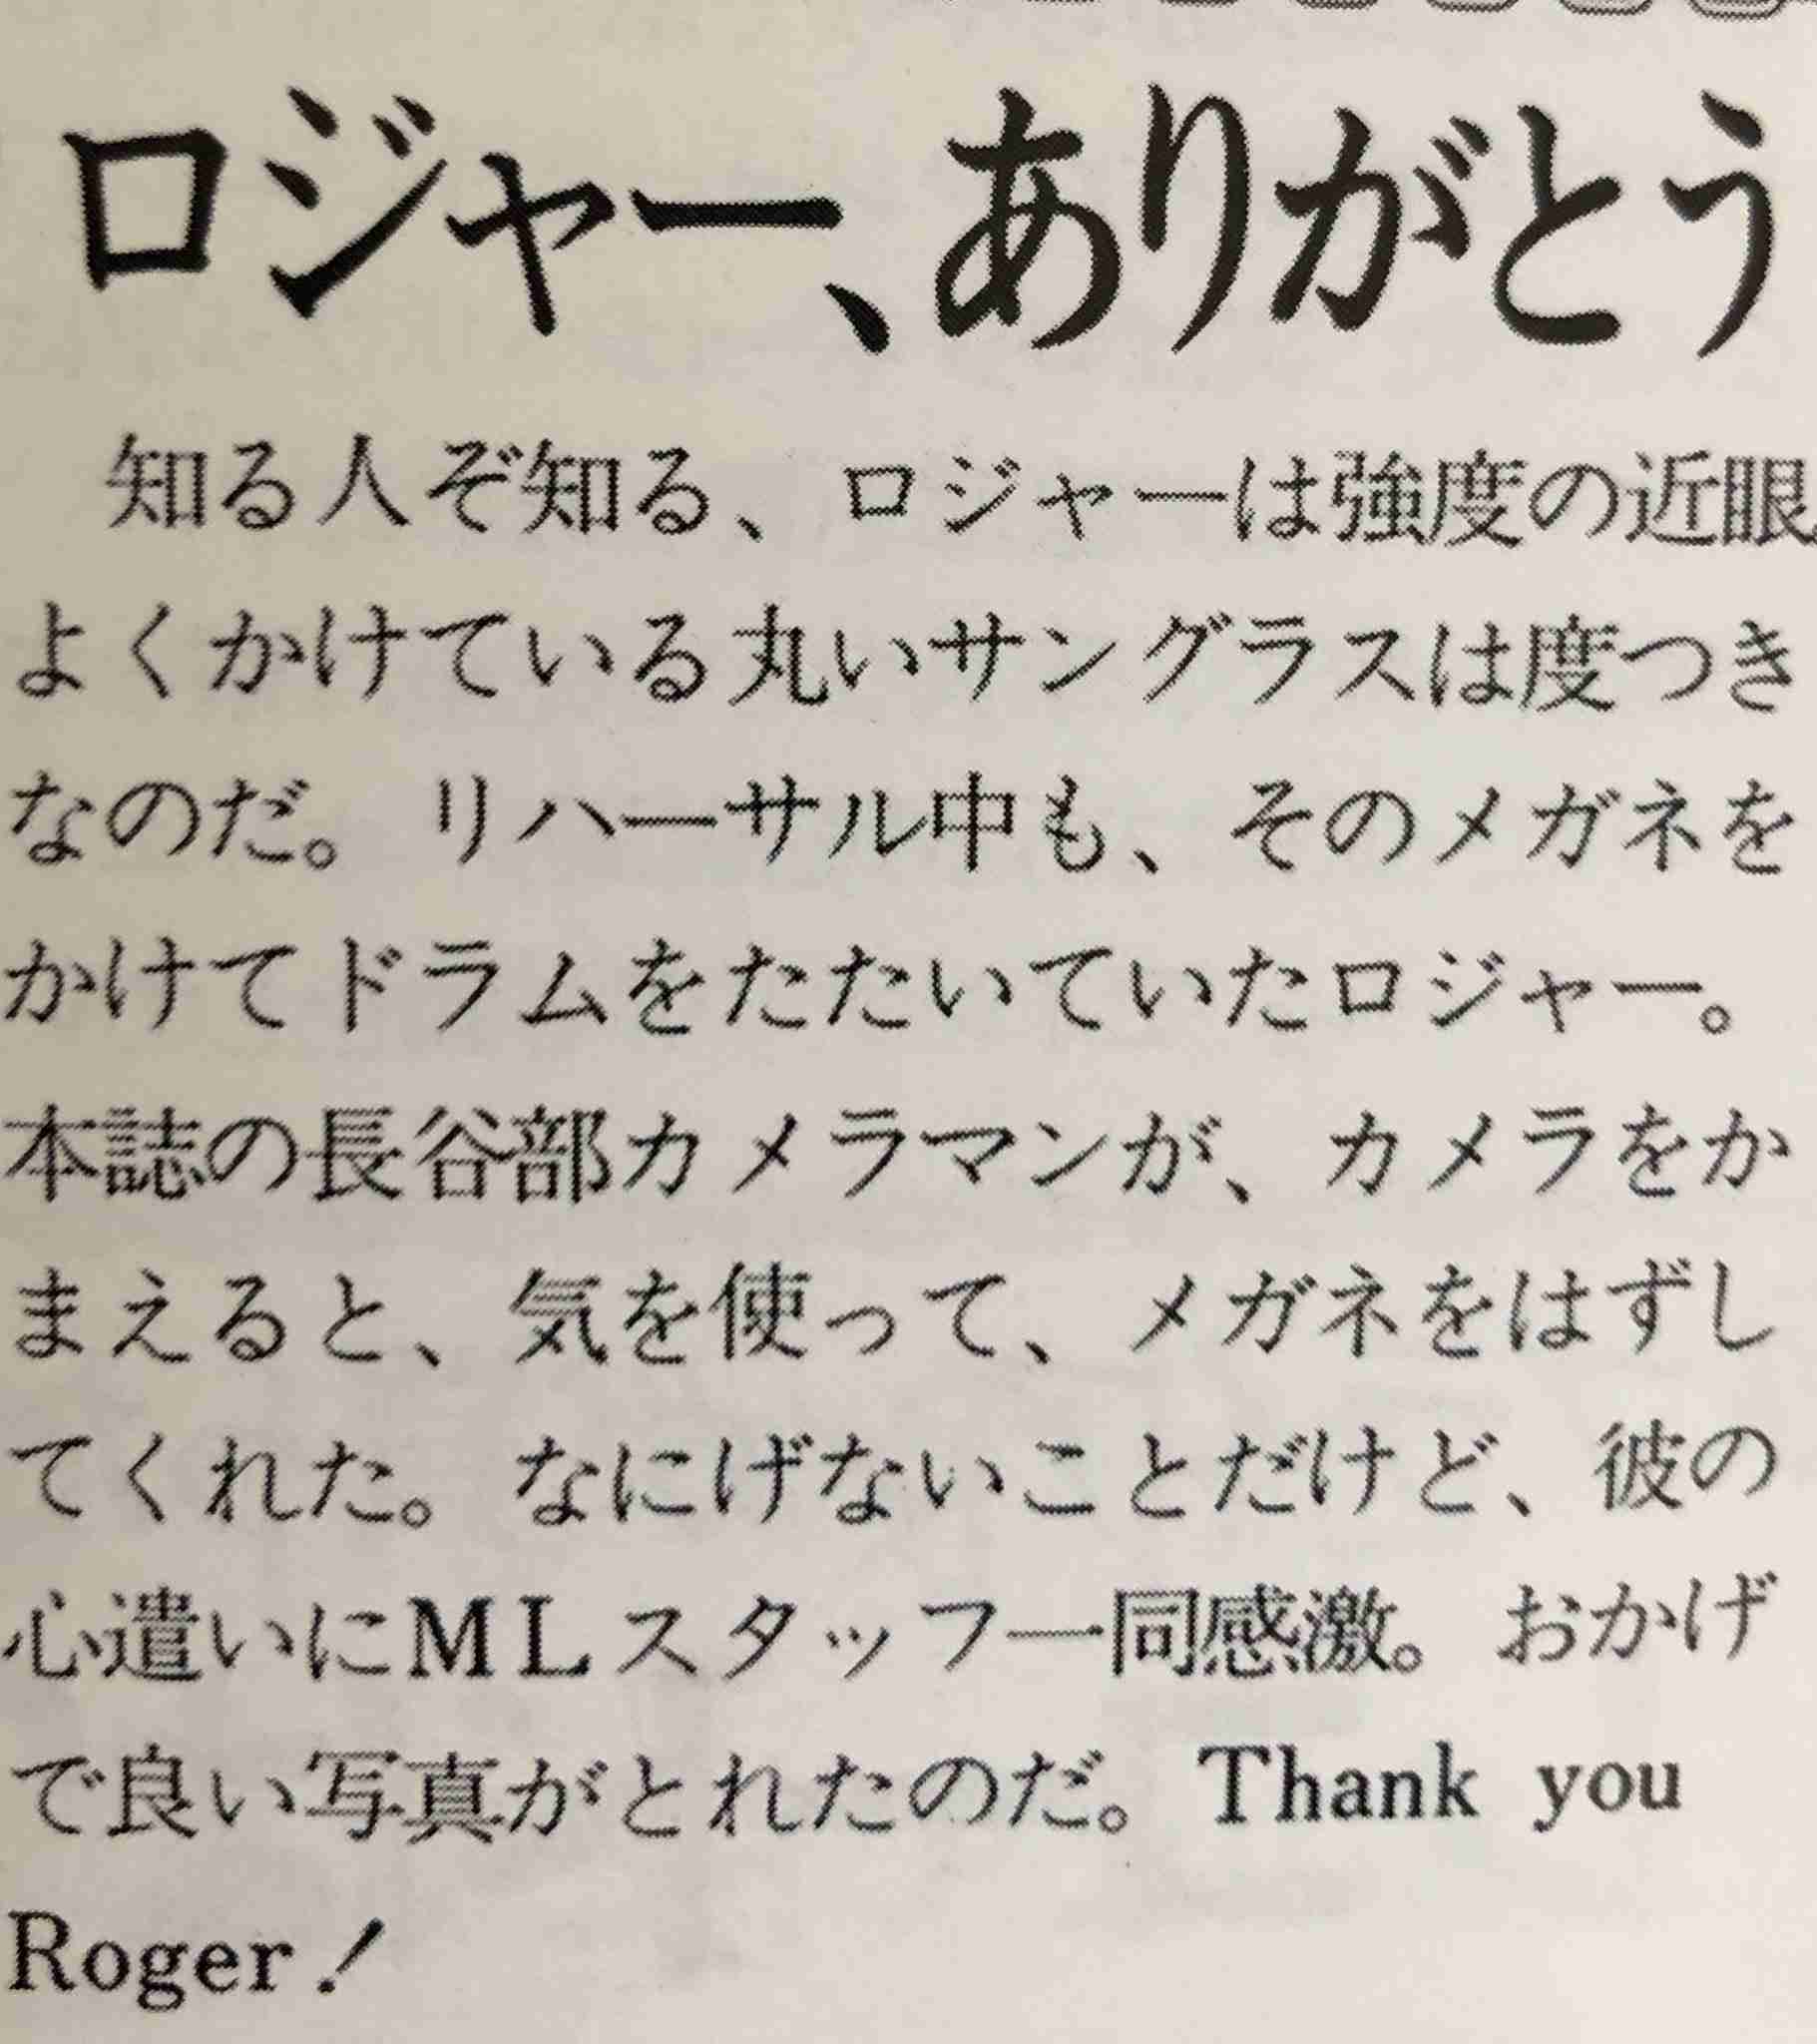 ロジャー、ありがとう
知る人ぞ知る、ロジャーは強度の近眼
よくかけている丸いサングラスは度つき
なのだ。リハーサル中も、そのメガネを
かけてドラムをたたいていたロジャー。
本誌の長谷部カメラマンが、カメラをか
まえると、気を使って、メガネをはずし
てくれた。なにげないことだけど、彼の
心遣いにMLスタッフ一同感激。おかげ
で良い写真がとれたのだ。Thank you
Roger!